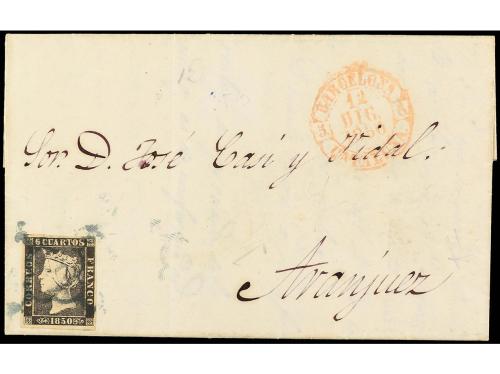 BARCELONA
12
DIC.
Sor. D. José Casi y Vidal.
6 CUARTOS
CORREOS
FRANCO
1850
Aranjuez